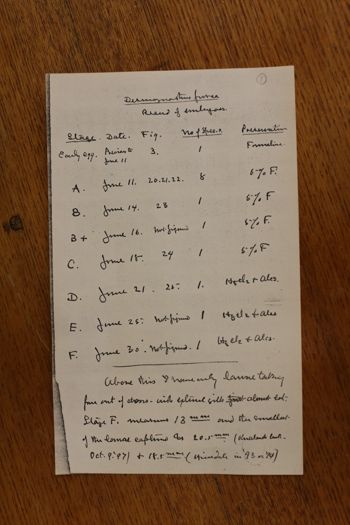 ①
Desmognathus fusca
Record of embryos.
Stage. Date. Fig. No of Spec.s Preservation
Early egg. Previous to June 11 3. 1 Formalin.
A. June 11. 20.21.22. 8 5% F.
B. June 14. 23 1 5% F
B+ June 16. Not figured 1 5% F.
C. June 18. 24 1 5% F
D. June 21. 25. 1. HgCl2 + Alco.
E. June 25. Not figured 1 HgCl2 + Alco.
F. June 30. Not figured. 1 HgCl2 + Alco.
Above this I have only larvae taken
out of doors with external gills
Stage F. measures 13 mm and the smallest
of the larvae captured is 20.5 mm
Oct. 9. '97) + 18.5 mm ( in '93 or '94)